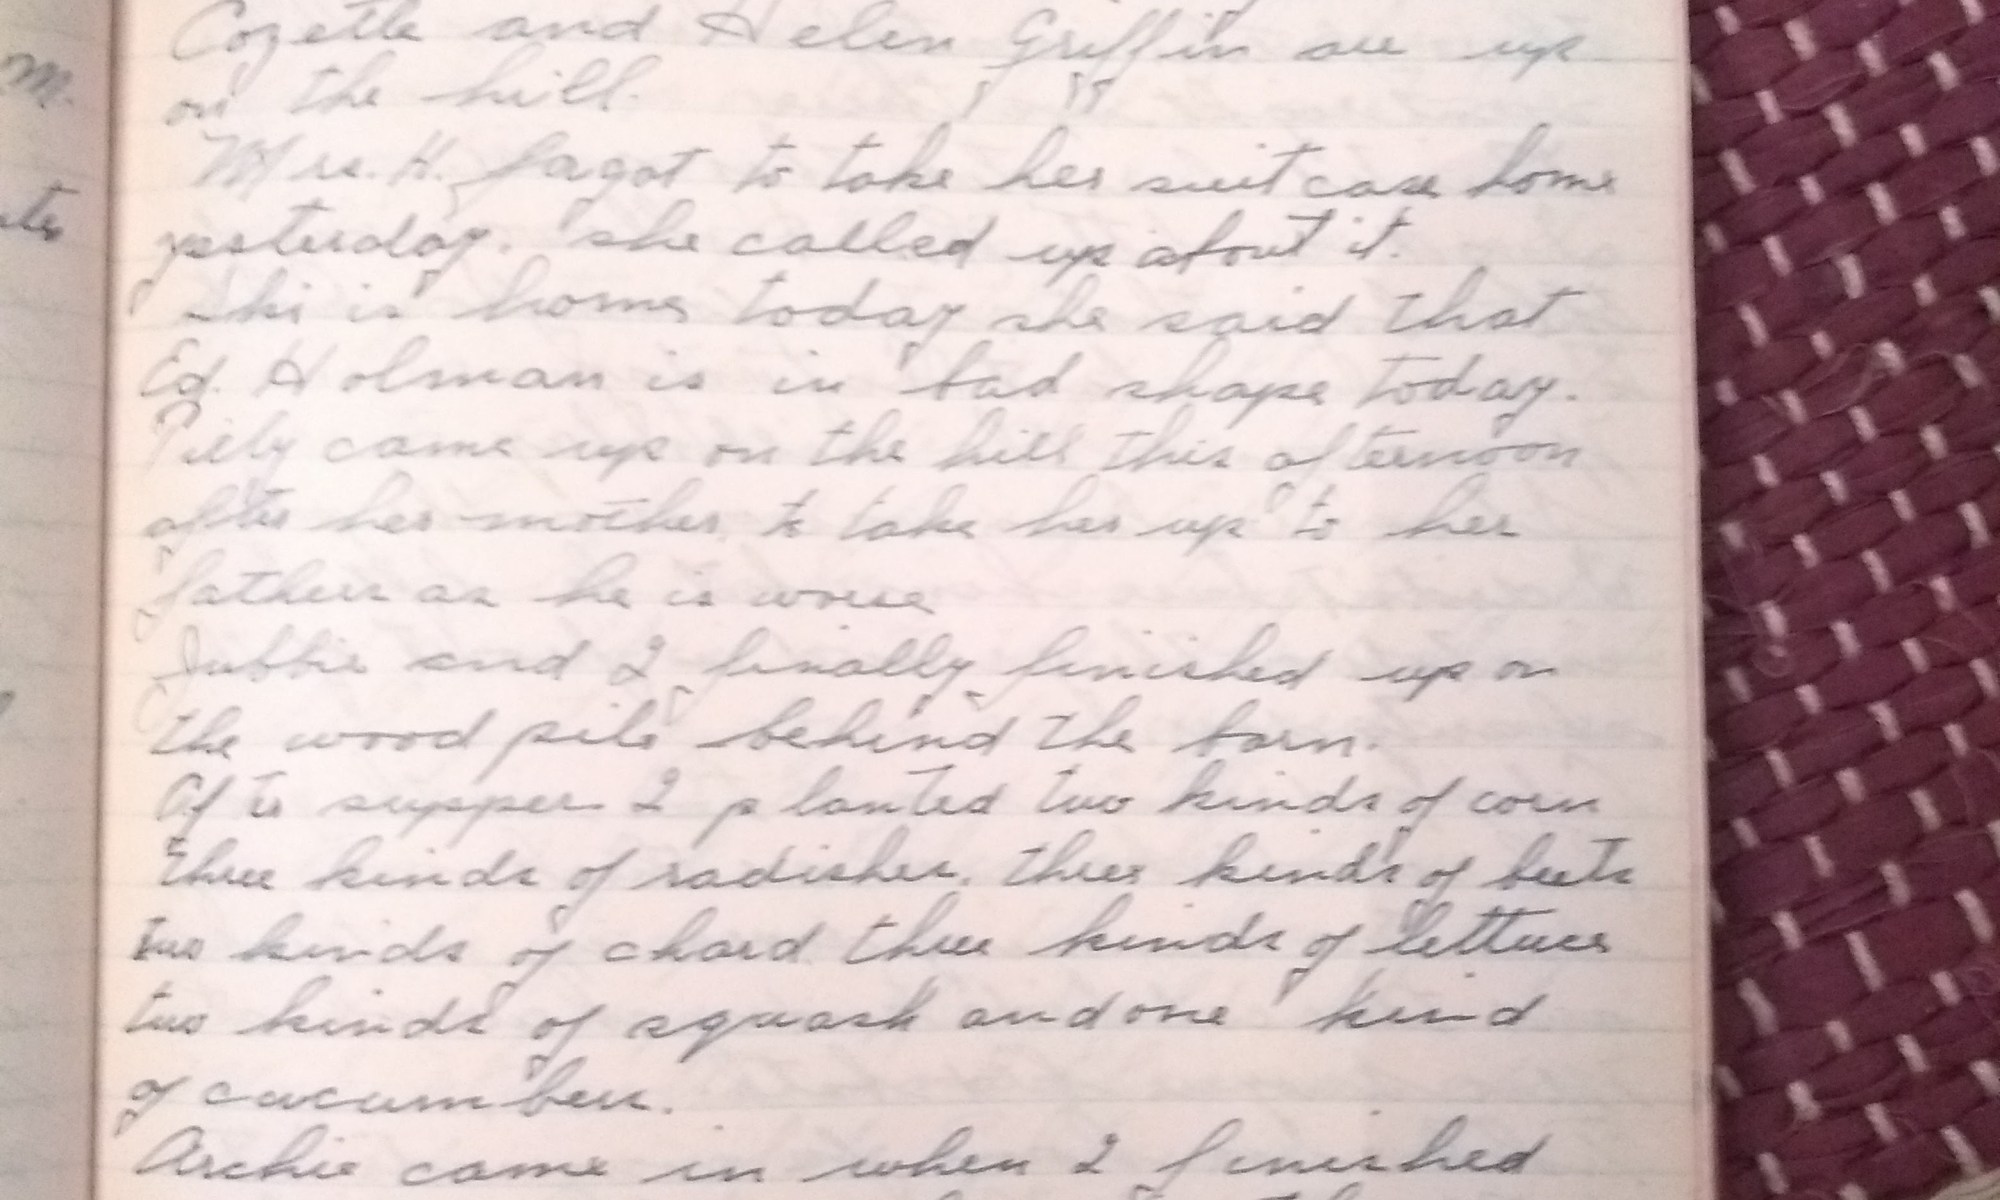 Cozette and Helen Griffin are up
on the hill.
M.
Mrs. H. fagot to take her suit case home
yesterday. she called up about it.
is home today she said that
Ed. Holman is in bad shape today.
came up on the hill this afternoon
after her mother to take her up to her
fathers as he is worse
and I finally finished up on
the wood pile behind the barn.
Afte supper I planted two kinds of corn
three kinds of radishes. three kinds of beets
two kinds of chard three kinds of lettuce
two kinds of squash and one kind
of cucumbers.
Archie came in when I finished